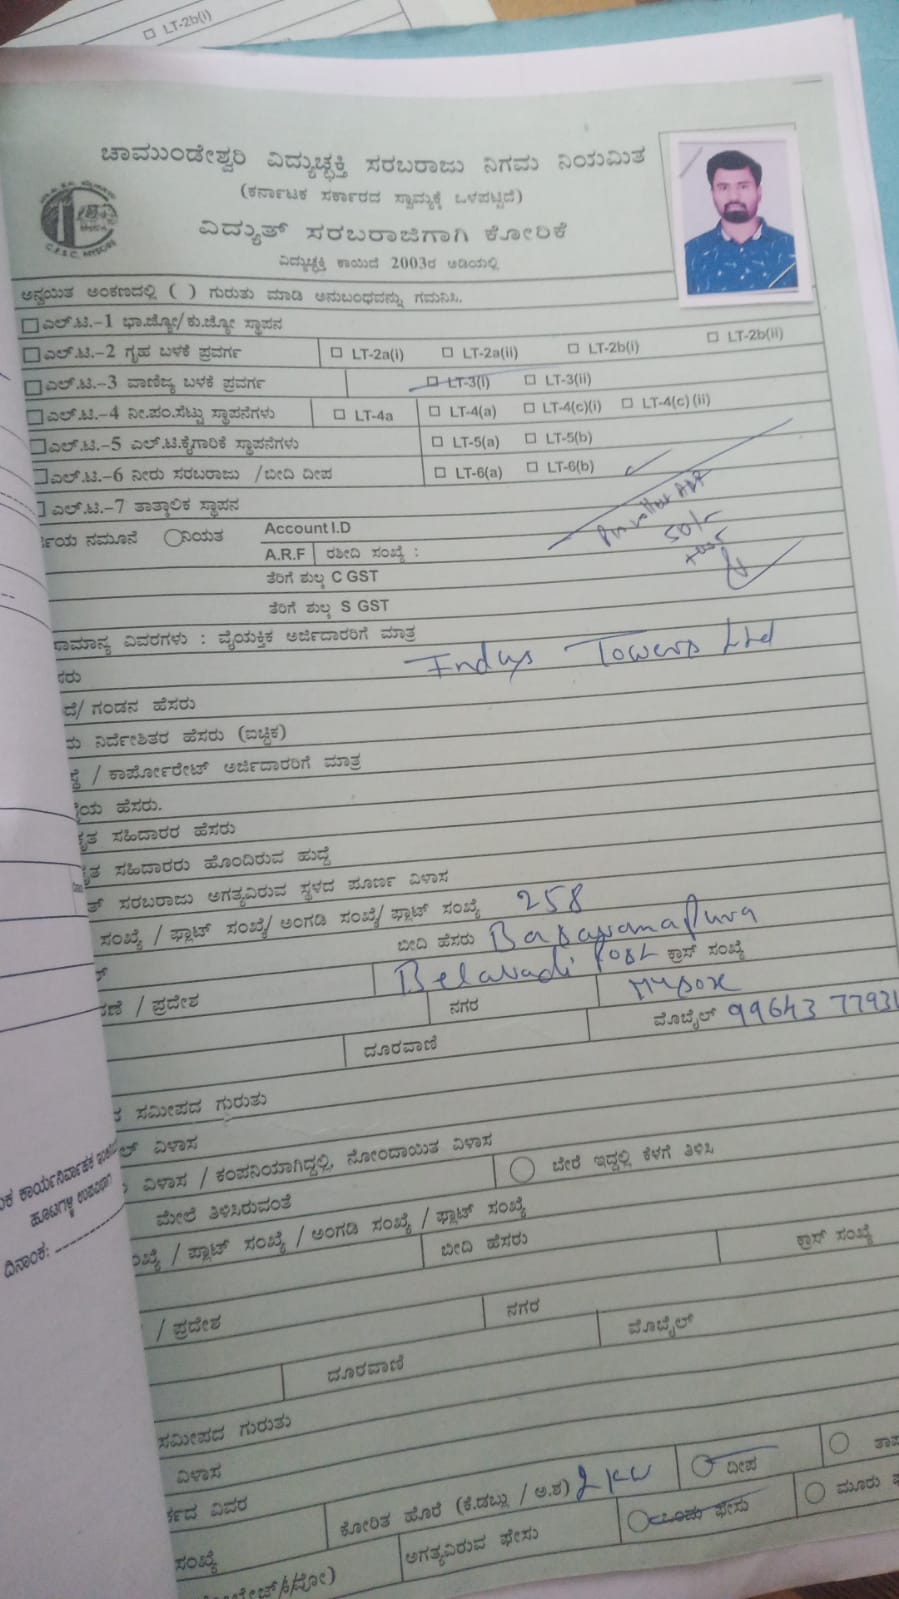 LT-2b(i)
ಚಾಮುಂಡೇಶ್ವರಿ ವಿದ್ಯುಚ್ಛಕ್ತಿ ಸರಬರಾಜು ನಿಗಮ ನಿಯಮಿತ
(ಕರ್ನಾಟಕ ಸರ್ಕಾರದ ಸ್ವಾಮ್ಯಕ್ಕೆ ಒಳಪಟ್ಟಿದೆ)
ವಿದ್ಯುತ್ ಸರಬರಾಜಿಗಾಗಿ ಕೋರಿಕೆ
ವಿದ್ಯುಚ್ಛಕ್ತಿ ಕಾಯಿದೆ 2003ರ ಅಡಿಯಲ್ಲಿ
C.E.S.C, MYSORE
ಅನ್ವಯಿತ ಅಂಕಣದಲ್ಲಿ ( ) ಗುರುತು ಮಾಡಿ ಅನುಬಂಧವನ್ನು ಗಮನಿಸಿ.
ಎಲ್.ಟಿ.-1 ಭಾ.ಜ್ಯೋ/ಕು.ಜ್ಯೋ ಸ್ಥಾಪನ
ಎಲ್.ಟಿ.-2 ಗೃಹ ಬಳಕೆ ಪ್ರವರ್ಗ LT-2a(i) LT-2a(ii) LT-2b(i) LT-2b(ii)
ಎಲ್.ಟಿ.-3 ವಾಣಿಜ್ಯ ಬಳಕೆ ಪ್ರವರ್ಗ LT-3(i) LT-3(ii)
ಎಲ್.ಟಿ.-4 ನೀ.ಪಂ.ಸೆಟ್ಟು ಸ್ಥಾಪನೆಗಳು LT-4a LT-4(a) LT-4(c)(i) LT-4(c)(ii)
ಎಲ್.ಟಿ.-5 ಎಲ್.ಟಿ.ಕೈಗಾರಿಕೆ ಸ್ಥಾಪನೆಗಳು LT-5(a) LT-5(b)
ಎಲ್.ಟಿ.-6 ನೀರು ಸರಬರಾಜು /ಬೀದಿ ದೀಪ LT-6(a) LT-6(b)
ಎಲ್.ಟಿ.-7 ತಾತ್ಕಾಲಿಕ ಸ್ಥಾಪನ
ನಮೂನೆ ನಿಯತ Account I.D
A.R.F ರಶೀದಿ ಸಂಖ್ಯೆ :
50/-
ತೆರಿಗೆ ಶುಲ್ಕ C GST
ತೆರಿಗೆ ಶುಲ್ಕ S GST
ಸಾಮಾನ್ಯ ವಿವರಗಳು : ವೈಯಕ್ತಿಕ ಅರ್ಜಿದಾರರಿಗೆ ಮಾತ್ರ
Indus Towers Ltd
/ ಗಂಡನ ಹೆಸರು
ನಿರ್ದೇಶಿತರ ಹೆಸರು (ಐಚ್ಛಿಕ)
/ ಕಾರ್ಪೋರೇಟ್ ಅರ್ಜಿದಾರರಿಗೆ ಮಾತ್ರ
ಹೆಸರು.
ಸಹಿದಾರರ ಹೆಸರು
ಸಹಿದಾರರು ಹೊಂದಿರುವ ಹುದ್ದೆ
ಸರಬರಾಜು ಅಗತ್ಯವಿರುವ ಸ್ಥಳದ ಪೂರ್ಣ ವಿಳಾಸ
ಸಂಖ್ಯೆ / ಫ್ಲಾಟ್ ಸಂಖ್ಯೆ/ ಅಂಗಡಿ ಸಂಖ್ಯೆ/ ಫ್ಲಾಟ್ ಸಂಖ್ಯೆ 258
ಬೀದಿ ಹೆಸರು Basavanapura
Belavadi Post ಕ್ರಾಸ್ ಸಂಖ್ಯೆ
/ ಪ್ರದೇಶ ನಗರ Mysore
ದೂರವಾಣಿ ಮೊಬೈಲ್ 99643 77931
ಸಮೀಪದ ಗುರುತು
ವಿಳಾಸ
ವಿಳಾಸ / ಕಂಪನಿಯಾಗಿದ್ದಲ್ಲಿ, ನೋಂದಾಯಿತ ವಿಳಾಸ
ಮೇಲೆ ತಿಳಿಸಿರುವಂತೆ ಬೇರೆ ಇದ್ದಲ್ಲಿ ಕೆಳಗೆ ತಿಳಿಸಿ
/ ಫ್ಲಾಟ್ ಸಂಖ್ಯೆ / ಅಂಗಡಿ ಸಂಖ್ಯೆ / ಫ್ಲಾಟ್ ಸಂಖ್ಯೆ
ಬೀದಿ ಹೆಸರು ಕ್ರಾಸ್ ಸಂಖ್ಯೆ
/ ಪ್ರದೇಶ ನಗರ
ದೂರವಾಣಿ ಮೊಬೈಲ್
ಸಮೀಪದ ಗುರುತು
ವಿಳಾಸ
ವಿವರ ಕೋರಿತ ಹೊರೆ (ಕೆ.ಡಬ್ಲು / ಅ.ಶ) 2 KW ದೀಪ
ಸಂಖ್ಯೆ ಅಗತ್ಯವಿರುವ ಫೇಸು ಒಂದು ಫೇಸು ಮೂರು
ಕಾರ್ಯನಿರ್ವಾಹಕ
ಹೂಟಗಳ್ಳಿ ಉಪವಿಭಾಗ
ದಿನಾಂಕ: